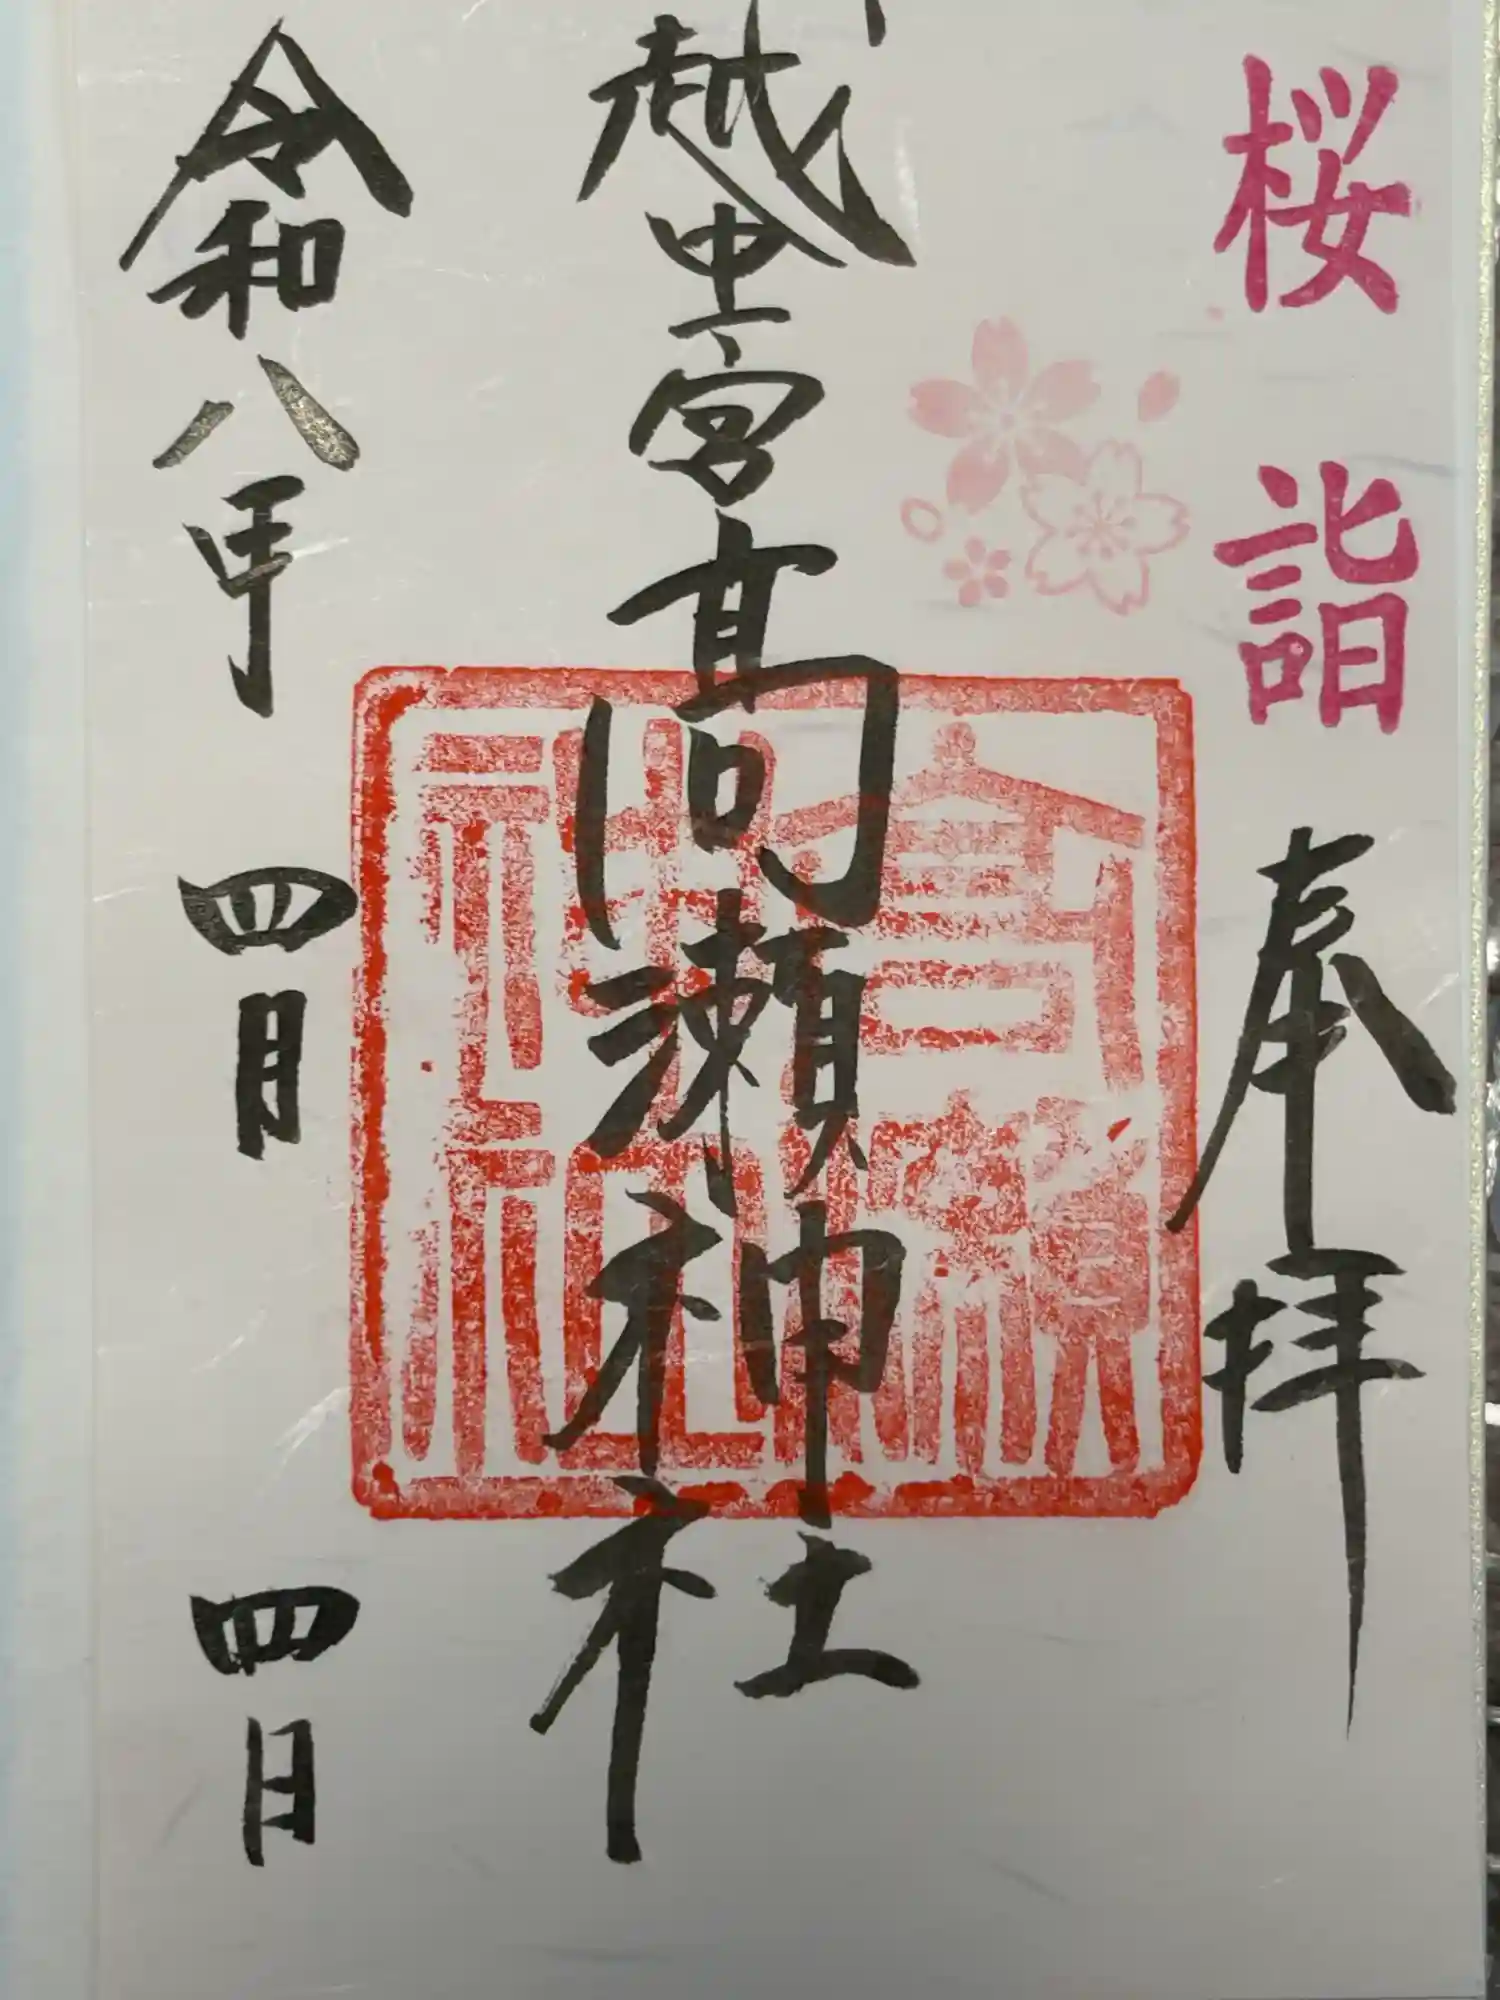 桜詣
奉拝
越中一宮高瀬神社
高瀬神社
令和八年 四月 四日